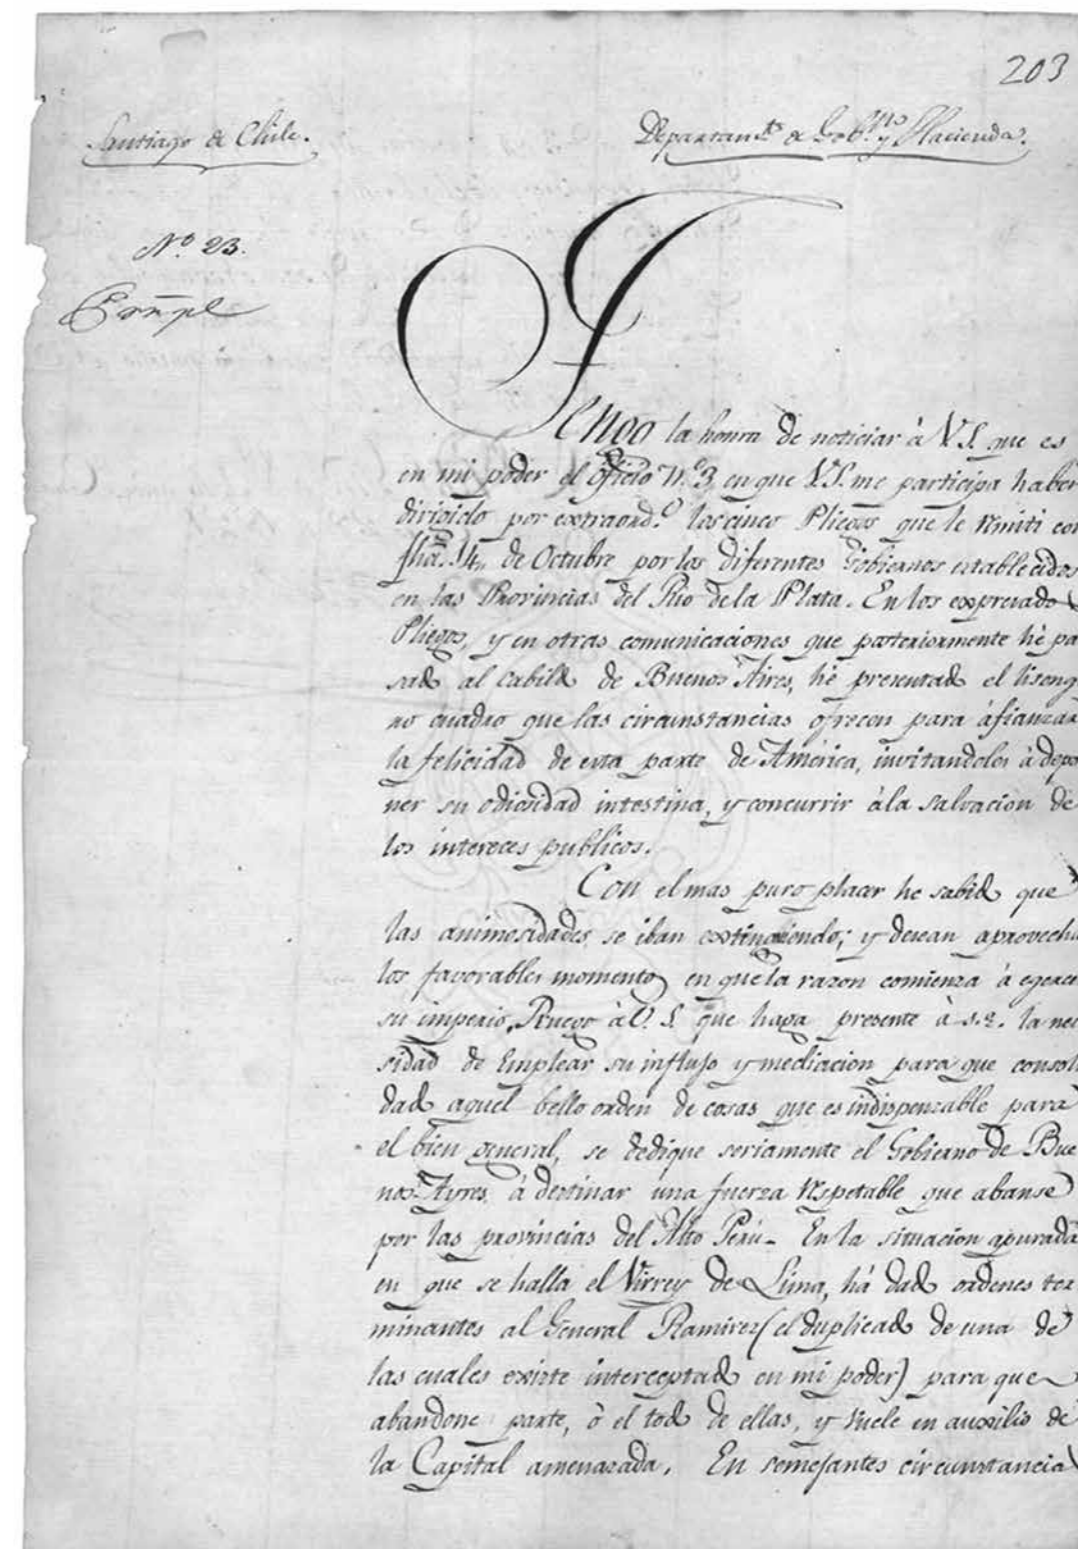 203
Santiago de Chile.
Departam.to de Gob.no y Hacienda.
N.o 23.
Tengo la honra de noticiar à V.S. que es
en mi poder el oficio N.o 3, en que V.S. me participa haber
dirigido por extraord.o los cinco Pliegos que le remiti con
fha. 14,, de Octubre por los diferentes Gobiernos establecidos
en las Provincias del Rio de la Plata. En los expresados
Pliegos, y en otras comunicaciones que posteriormente hè pa
sado al Cabildo de Buenos Aires, hè presentado el lisong
ro quadro que las circunstancias ofrecen para àfianzar
la felicidad de esta parte de América, invitandoles à depo
ner su odiosidad intestina, y concurrir àla salvacion de
los intereces publicos.
Con el mas puro placer he sabido que
las animosidades se iban extinguiendo; y desean aprovecha
los favorables momentos en que la razon comienza à egercer
su imperio, Ruego à V.S. que haga presente à S.E. la nece
sidad de emplear su influjo y mediacion para que consoli
dado aquel bello orden de cosas que es indispensable para
el bien general, se dedique seriamente el Gobierno de Bue
nos-Ayres à destinar una fuerza respetable que abanse
por las provincias del Alto Perù- En la situacion apurada
en que se halla el Virrey de Lima, hà dado ordenes ter
minantes al General Ramirez (el duplicado de una de
las cuales existe interceptado en mi poder) para que
abandone parte, ò el todo de ellas, y vuele en auxilio de
la Capital amenazada. En semejantes circunstancias